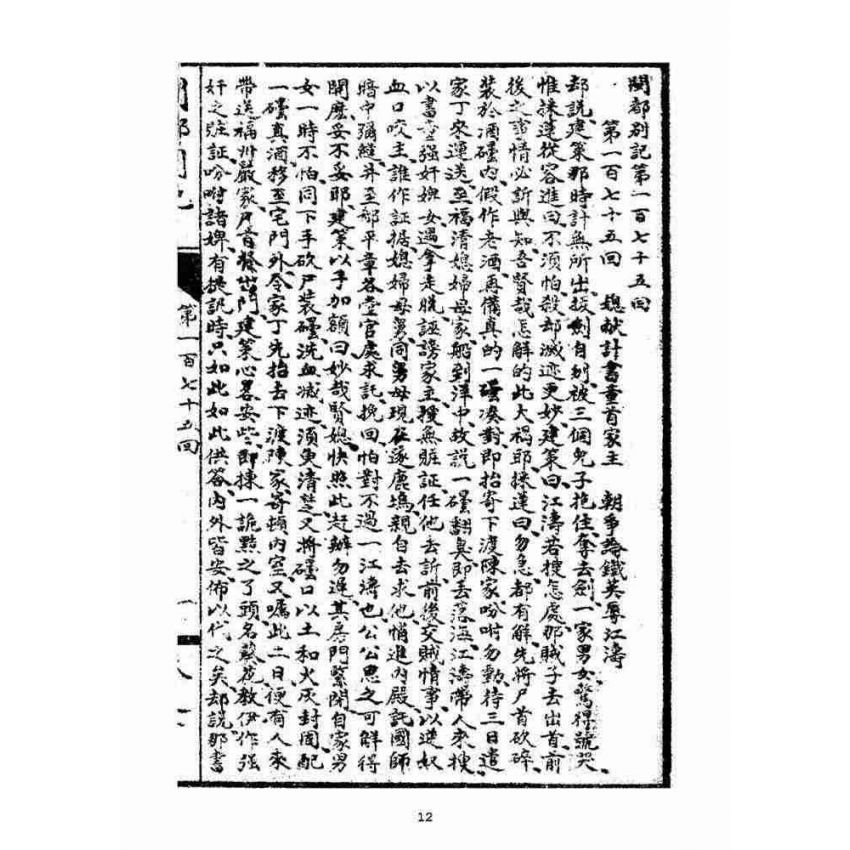 閩都別記第一百七十五回
第一百七十五回　媳献計書童首家主　朝爭論鐵英辱江濤
却說建策那時計無所出拔劍自刎被三個兒子抱住奪去劍一家男女驚惶號哭
惟採蓮從容進曰不須怕殺却滅迹更妙建策曰江濤若搜怎處那賊子去出首前
後之事情必訴與知吾賢哉怎解的此大禍耶採蓮曰勿急都有解先將尸首砍碎
裝於酒礶內假作老酒再備真的一礶凑對即抬寄下渡陳家吩咐勿動待三日遣
家丁來運送至福清媳婦母家船到洋中故說一礶翻臭即丢落海江濤帶人來搜
以書童强奸婢女遇拿走脱誣謗家主搜無賍証任他去訴前後交賊情事以逆奴
血口咬主誰作証据媳婦母舅同舅母現在逐鹿塢親自去求他悄進內殿託國師
暗中彌縫并至部平章各堂官處求託挽回怕對不過一江濤也公公思之可解得
開麽妥不妥耶建策以手加額曰妙哉賢媳快照此赶辦勿遲其房門緊閉自家男
女一時不怕同下手砍尸裝礶洗血滅迹須臾清楚又將礶口以土和火灰封固配
一礶真酒移至宅門外令家丁先抬去下渡陳家寄頓內室又嘱此二日便有人來
帶送福州嚴家尸首發出門建策心畧安些即揀一詭黠之丫頭名發花教伊作强
奸之賍証吩咐諸婢有提訊時只如此如此供答內外皆安佈以代之矣却說那書
第一百七十五回
12